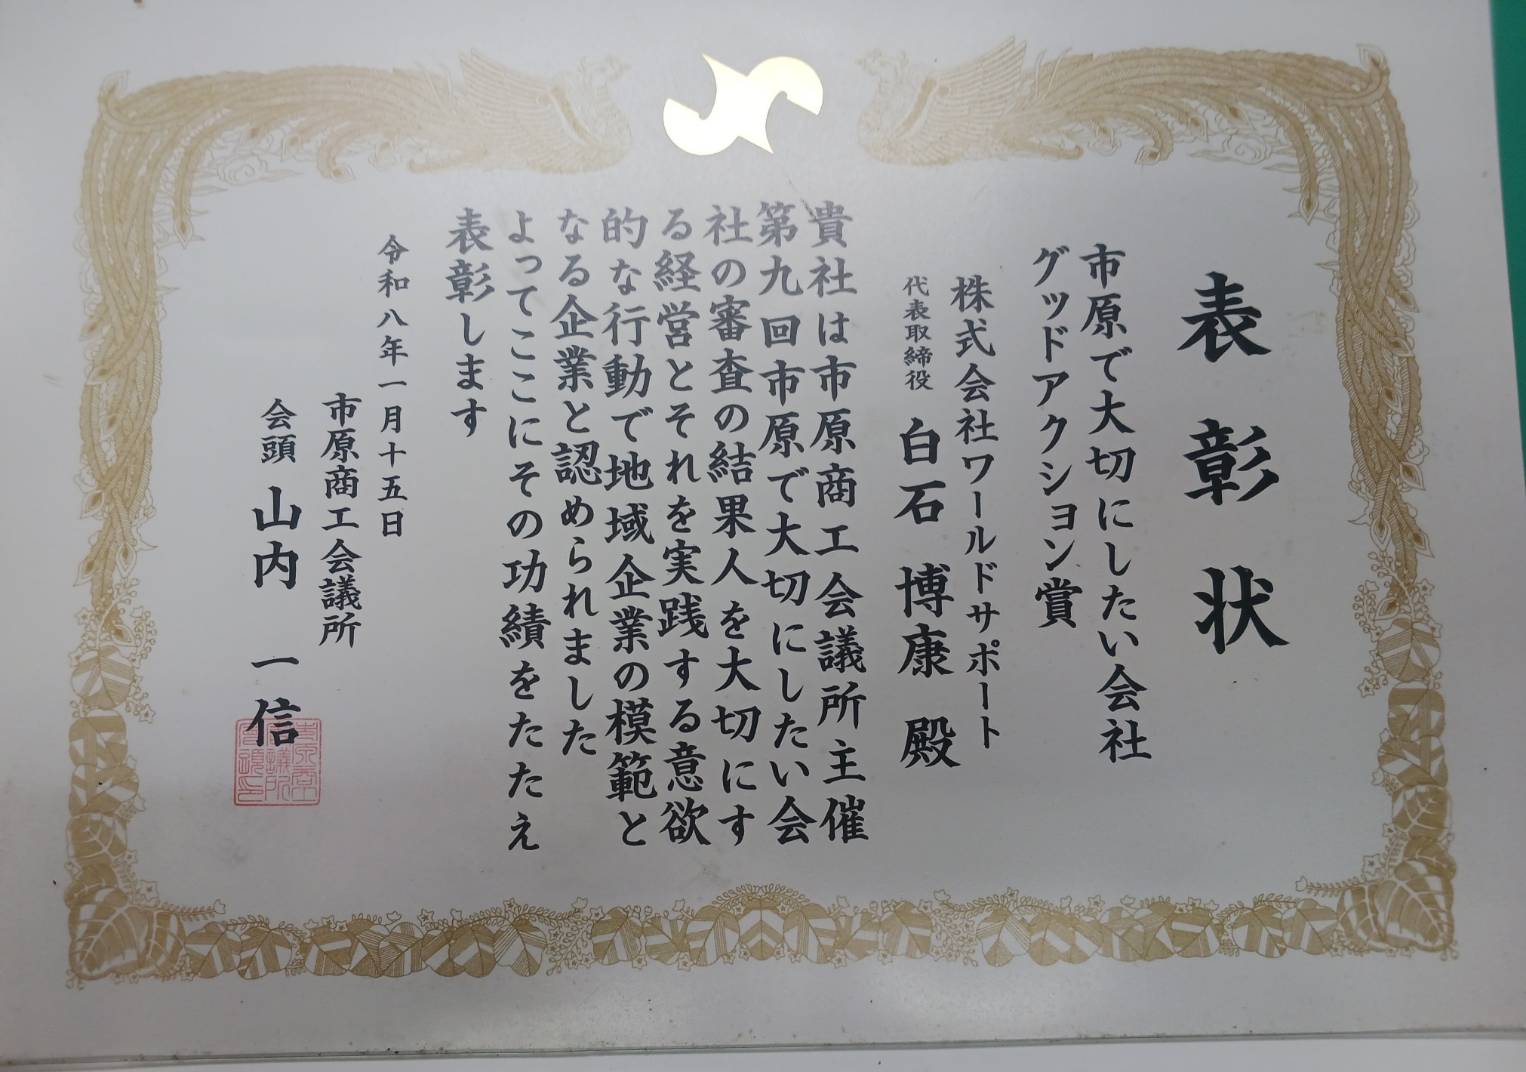 表彰状
市原で大切にしたい会社
グッドアクション賞
株式会社ワールドサポート
代表取締役 白石 博康 殿
貴社は市原商工会議所主催
第九回市原で大切にしたい会
社の審査の結果人を大切にす
る経営とそれを実践する意欲
的な行動で地域企業の模範と
なる企業と認められました
よってここにその功績をたたえ
表彰します
令和八年一月十五日
市原商工会議所
会頭 山内 一信